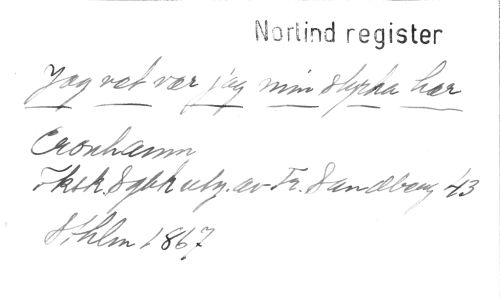 Norlind register
Jag vet var jag min styrka har
Cronhamn
Fksk. Sgbk utg. av Fr. Sandberg 43
Sthlm 1867